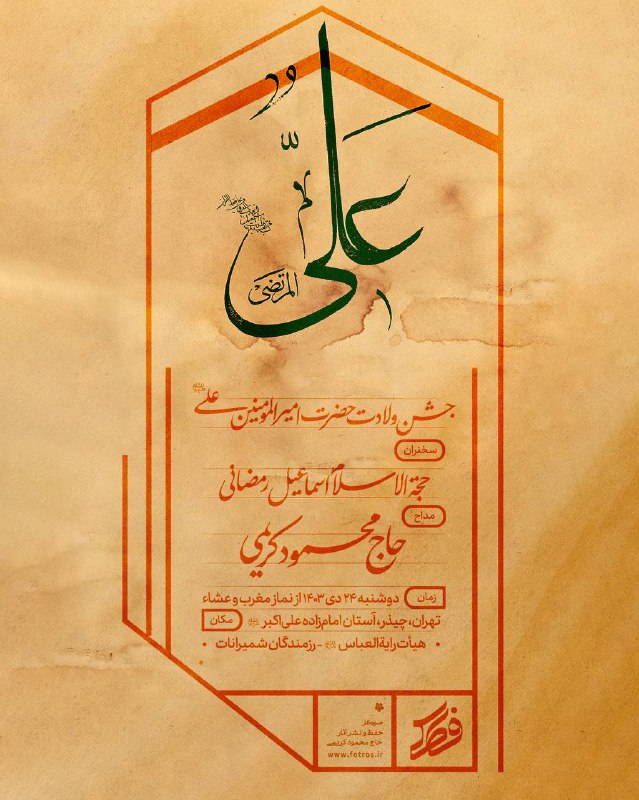 علیّ
المرتضی
جشن ولادت حضرت امیرالمؤمنین علی
سخنران
حجة الاسلام اسماعیل رمضانی
مداح
حاج محمود کریمی
زمان دوشنبه ۲۴ دی ۱۴۰۳ از نماز مغرب و عشاء
مکان تهران، چیذر، آستان امامزاده علی‌اکبر
• هیأت رایة العباس - رزمندگان شمیرانات •
فطرس
مرکز
حفظ و نشر آثار
حاج محمود کریمی
www.fotros.ir